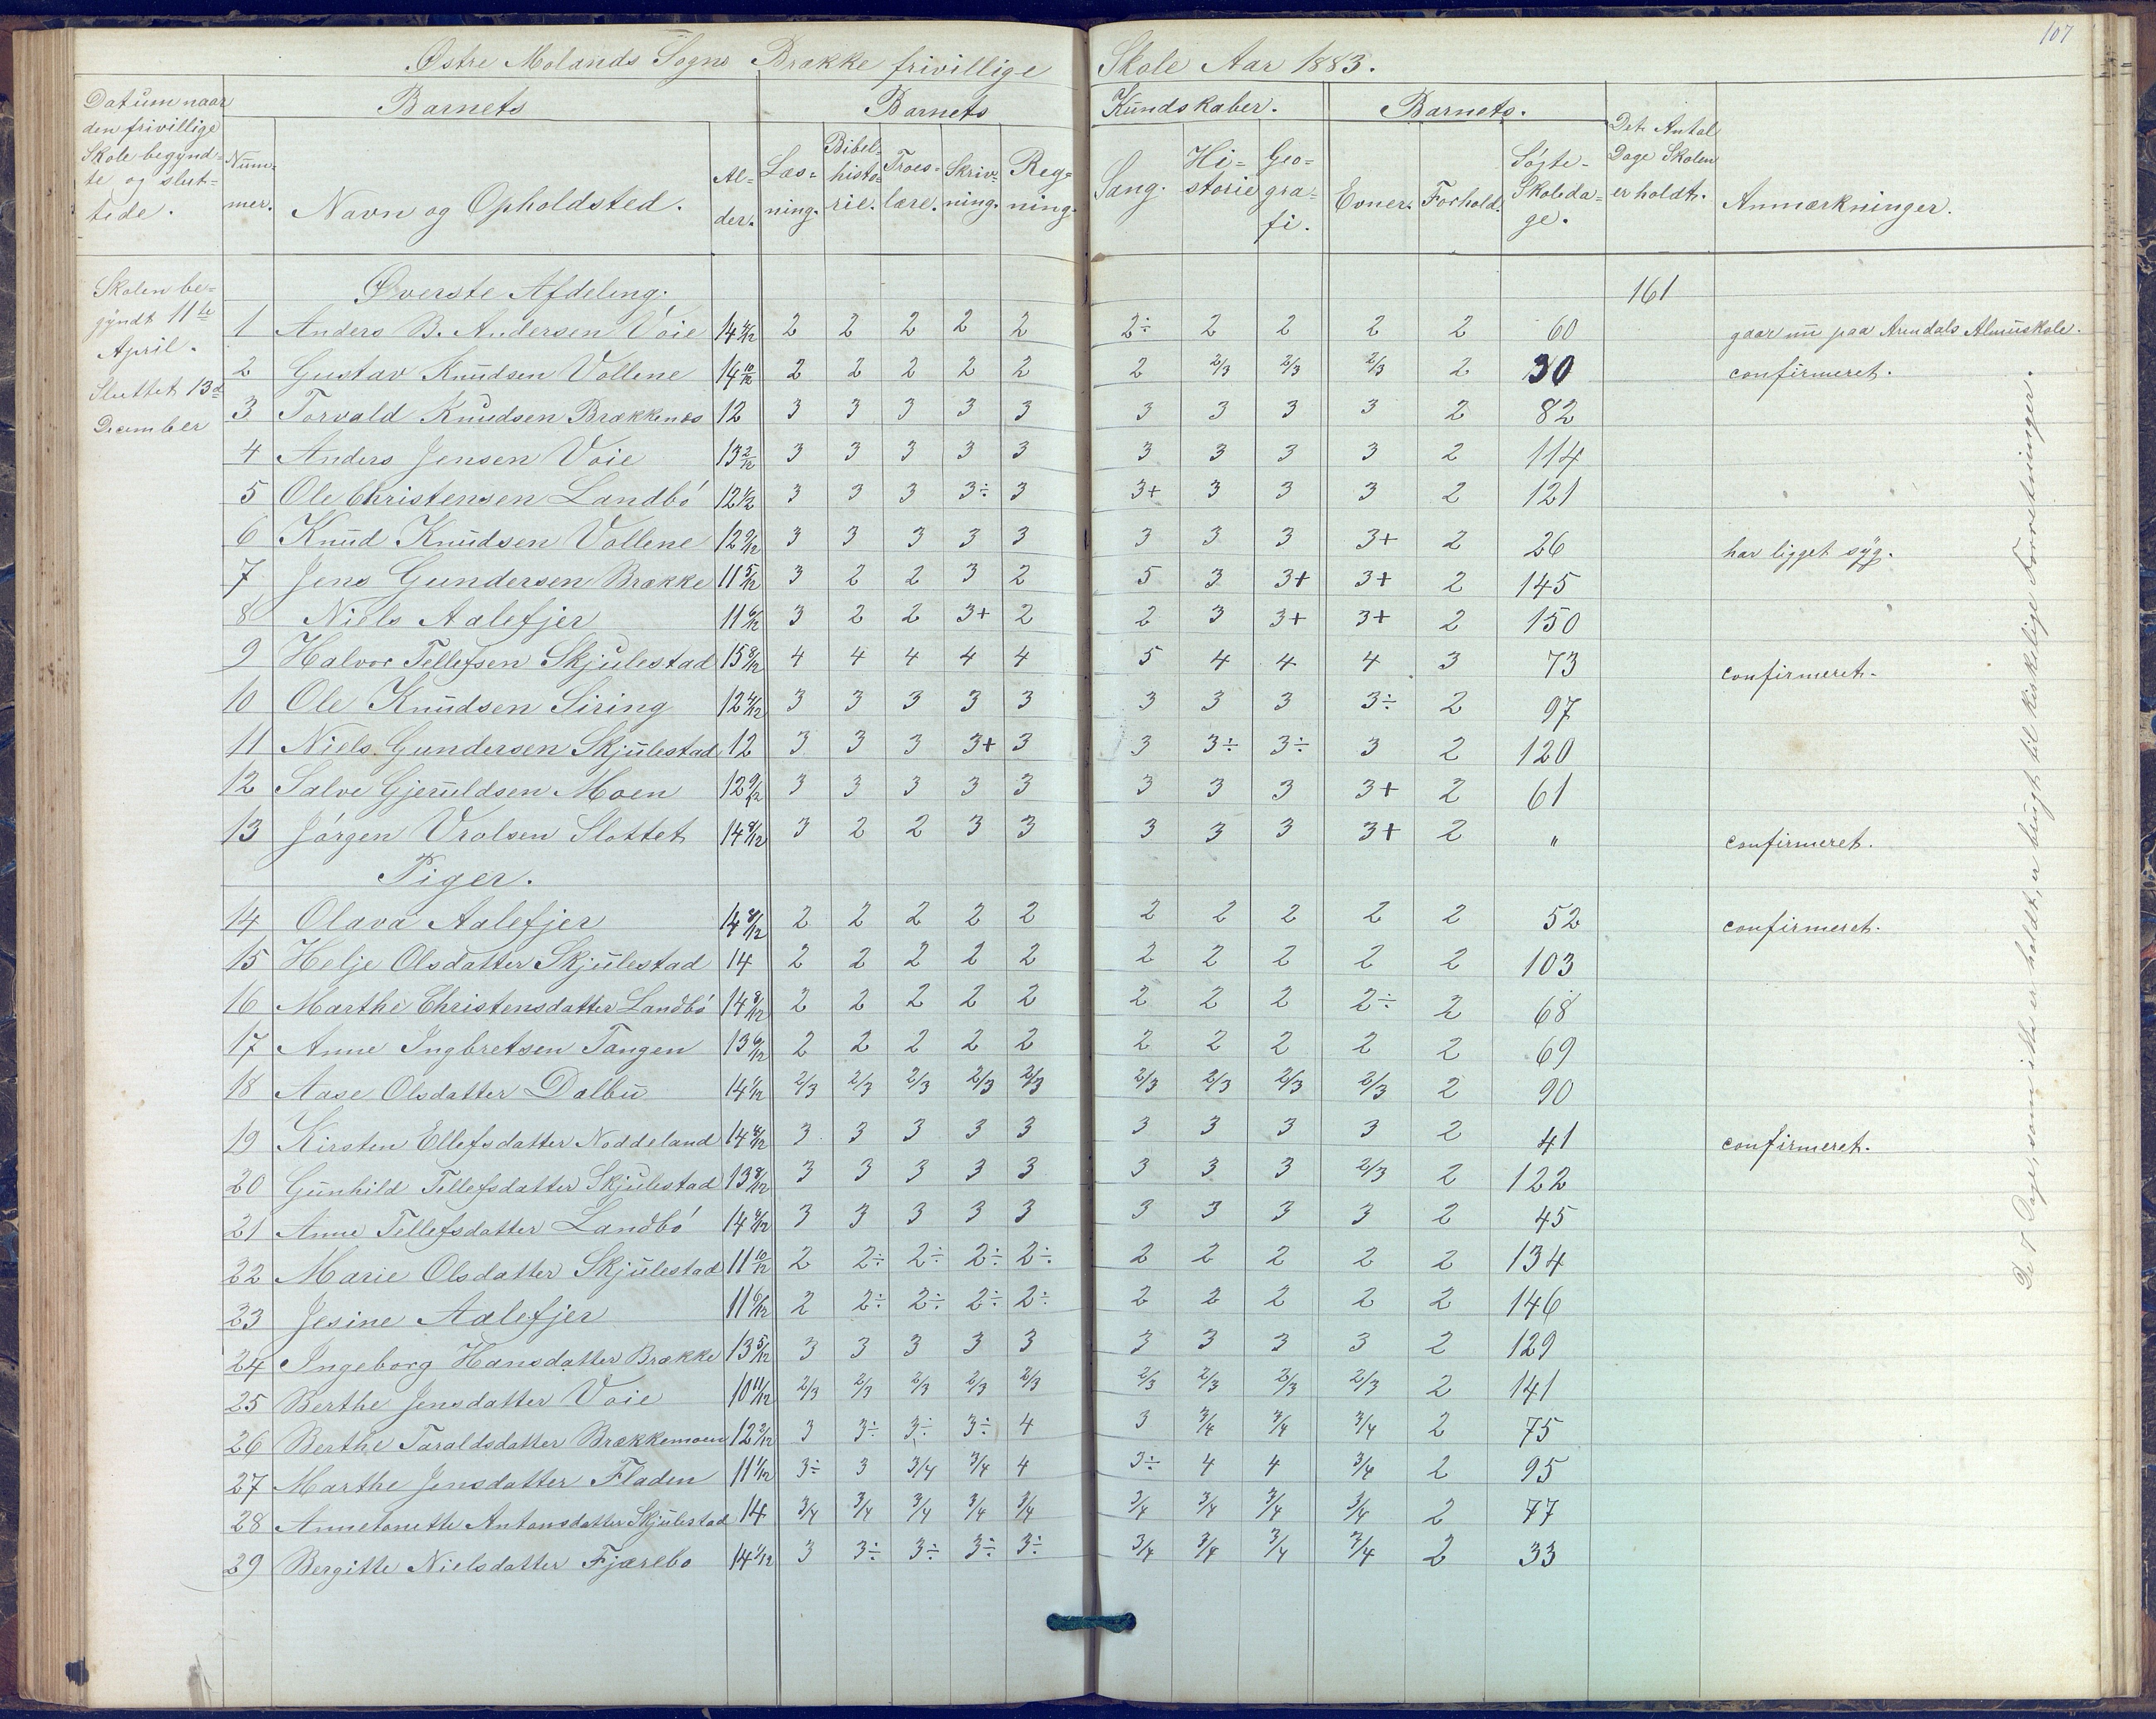 107
Østre Molands Sogns Brække frivillige Skole Aar 1883.
Datum naar den frivillige Skole begynd=te og slut=tede. | Barnets | Barnets Kundskaber. | Barnets. | Det Antal Dage Skolen er holdt. | Anmærkninger.
Num=mer. | Navn og Opholdsted. | Al=der. | Læs=ning. | Bibel=histo=rie. | Troes=lære. | Skriv=ning. | Reg=ning. | Sang. | Hi=storie | Geo=gra=fi. | Evner. | Forhold. | Søgte Skoleda=ge.
Skolen be=
gyndt 11te
April.
Sluttet 13de
December
Øverste Afdeling. 161
1 Anders B. Andersen Voie 14 4/12 2 2 2 2 2 2÷ 2 2 2 2 60 gaar nu paa Arendals Almuskole.
2 Gustav Knudsen Vollene 14 10/12 2 2 2 2 2 2 2/3 2/3 2/3 2 30 confirmeret.
3 Torvald Knudsen Brækkenes 12 3 3 3 3 3 3 3 3 3 2 82
4 Anders Jensen Voie 13 2/12 3 3 3 3 3 3 3 3 3 2 114
5 Ole Christensen Landbó 12 1/2 3 3 3 3÷ 3 3+ 3 3 3 2 121
6 Knud Knudsen Vollene 12 9/12 3 3 3 3 3 3 3 3 3+ 2 26 har ligget syg.
7 Jens Gundersen Brække 11 5/12 3 2 2 3 2 5 3 3+ 3+ 2 145
8 Niels Aalefjer 11 6/12 3 2 2 3+ 2 2 3 3+ 3+ 2 150
9 Halvor Tellefsen Skjulestad 15 8/12 4 4 4 4 4 5 4 4 4 3 73 confirmeret.
10 Ole Knudsen Siring 12 4/12 3 3 3 3 3 3 3 3 3÷ 2 97
11 Niels Gundersen Skjulestad 12 3 3 3 3+ 3 3 3÷ 3÷ 3 2 120
12 Salve Gjeruldsen Moen 12 9/12 3 3 3 3 3 3 3 3 3+ 2 61
13 Jórgen Vrolsen Slottet 14 8/12 3 2 2 3 3 3 3 3 3+ 2 " confirmeret.
Piger.
14 Olava Aalefjer 14 8/12 2 2 2 2 2 2 2 2 2 2 52 confirmeret.
15 Helje Olsdatter Skjulestad 14 2 2 2 2 2 2 2 2 2 2 103
16 Marthe Christensdatter Landbó 14 8/12 2 2 2 2 2 2 2 2 2÷ 2 68
17 Anne Ingbretsen Tangen 13 6/12 2 2 2 2 2 2 2 2 2 2 69
18 Aase Olsdatter Dalbu 14 1/12 2/3 2/3 2/3 2/3 2/3 2/3 2/3 2/3 2/3 2 90
19 Kirsten Ellefsdatter Noddeland 14 8/12 3 3 3 3 3 3 3 3 3 2 41 confirmeret.
20 Gunhild Tellefsdatter Skjulestad 13 8/12 3 3 3 3 3 3 3 3 2/3 2 122
21 Anne Tellefsdatter Landbó 14 4/12 3 3 3 3 3 3 3 3 3 2 45
22 Marie Olsdatter Skjulestad 11 10/12 2 2÷ 2÷ 2÷ 2÷ 2 2 2 2 2 134
23 Jesine Aalefjer 11 6/12 2 2÷ 2÷ 2÷ 2÷ 2 2 2 2 2 146
24 Ingeborg Hansdatter Brække 13 5/12 3 3 3 3 3 3 3 3 3 2 129
25 Berthe Jensdatter Voie 10 11/12 2/3 2/3 2/3 2/3 2/3 2/3 2/3 2/3 2/3 2 141
26 Berthe Taraldsdatter Brækkemoen 12 2/12 3 3÷ 3÷ 3÷ 4 3 3/4 3/4 3/4 2 75
27 Marthe Jensdatter Fladen 11 1/12 3÷ 3 3/4 3/4 4 3÷ 4 4 3/4 2 95
28 Annetonette Antonsdatter Skjulestad 14 3/4 3/4 3/4 3/4 3/4 3/4 3/4 3/4 3/4 2 77
29 Bergitte Nielsdatter Fjærebo 14 1/12 3 3÷ 3÷ 3÷ 3÷ 3/4 3/4 3/4 3/4 2 33
De 7 Dage, som ikke er holdt, er brugt til kirkelige Forretninger.